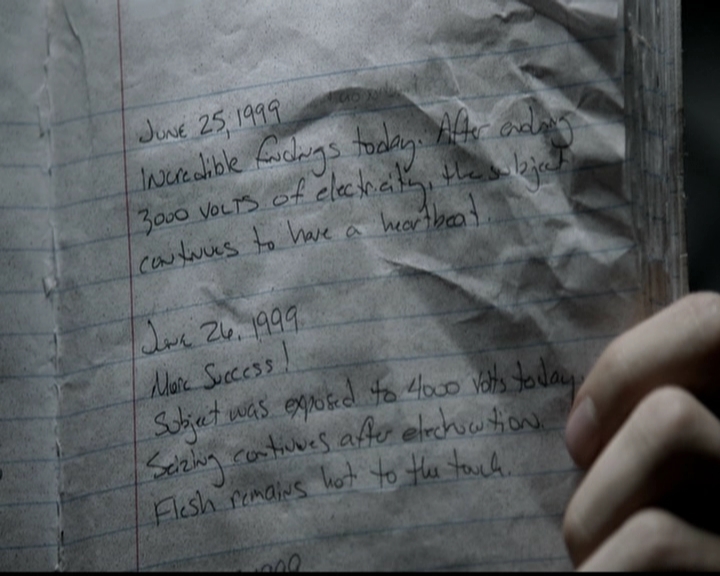 June 25, 1999
Incredible findings today. After enduring
3000 volts of electricity, the subject
continues to have a heartbeat.
June 26, 1999
More Success!
Subject was exposed to 4000 volts today.
Seizing continues after electrocution.
Flesh remains hot to the touch.